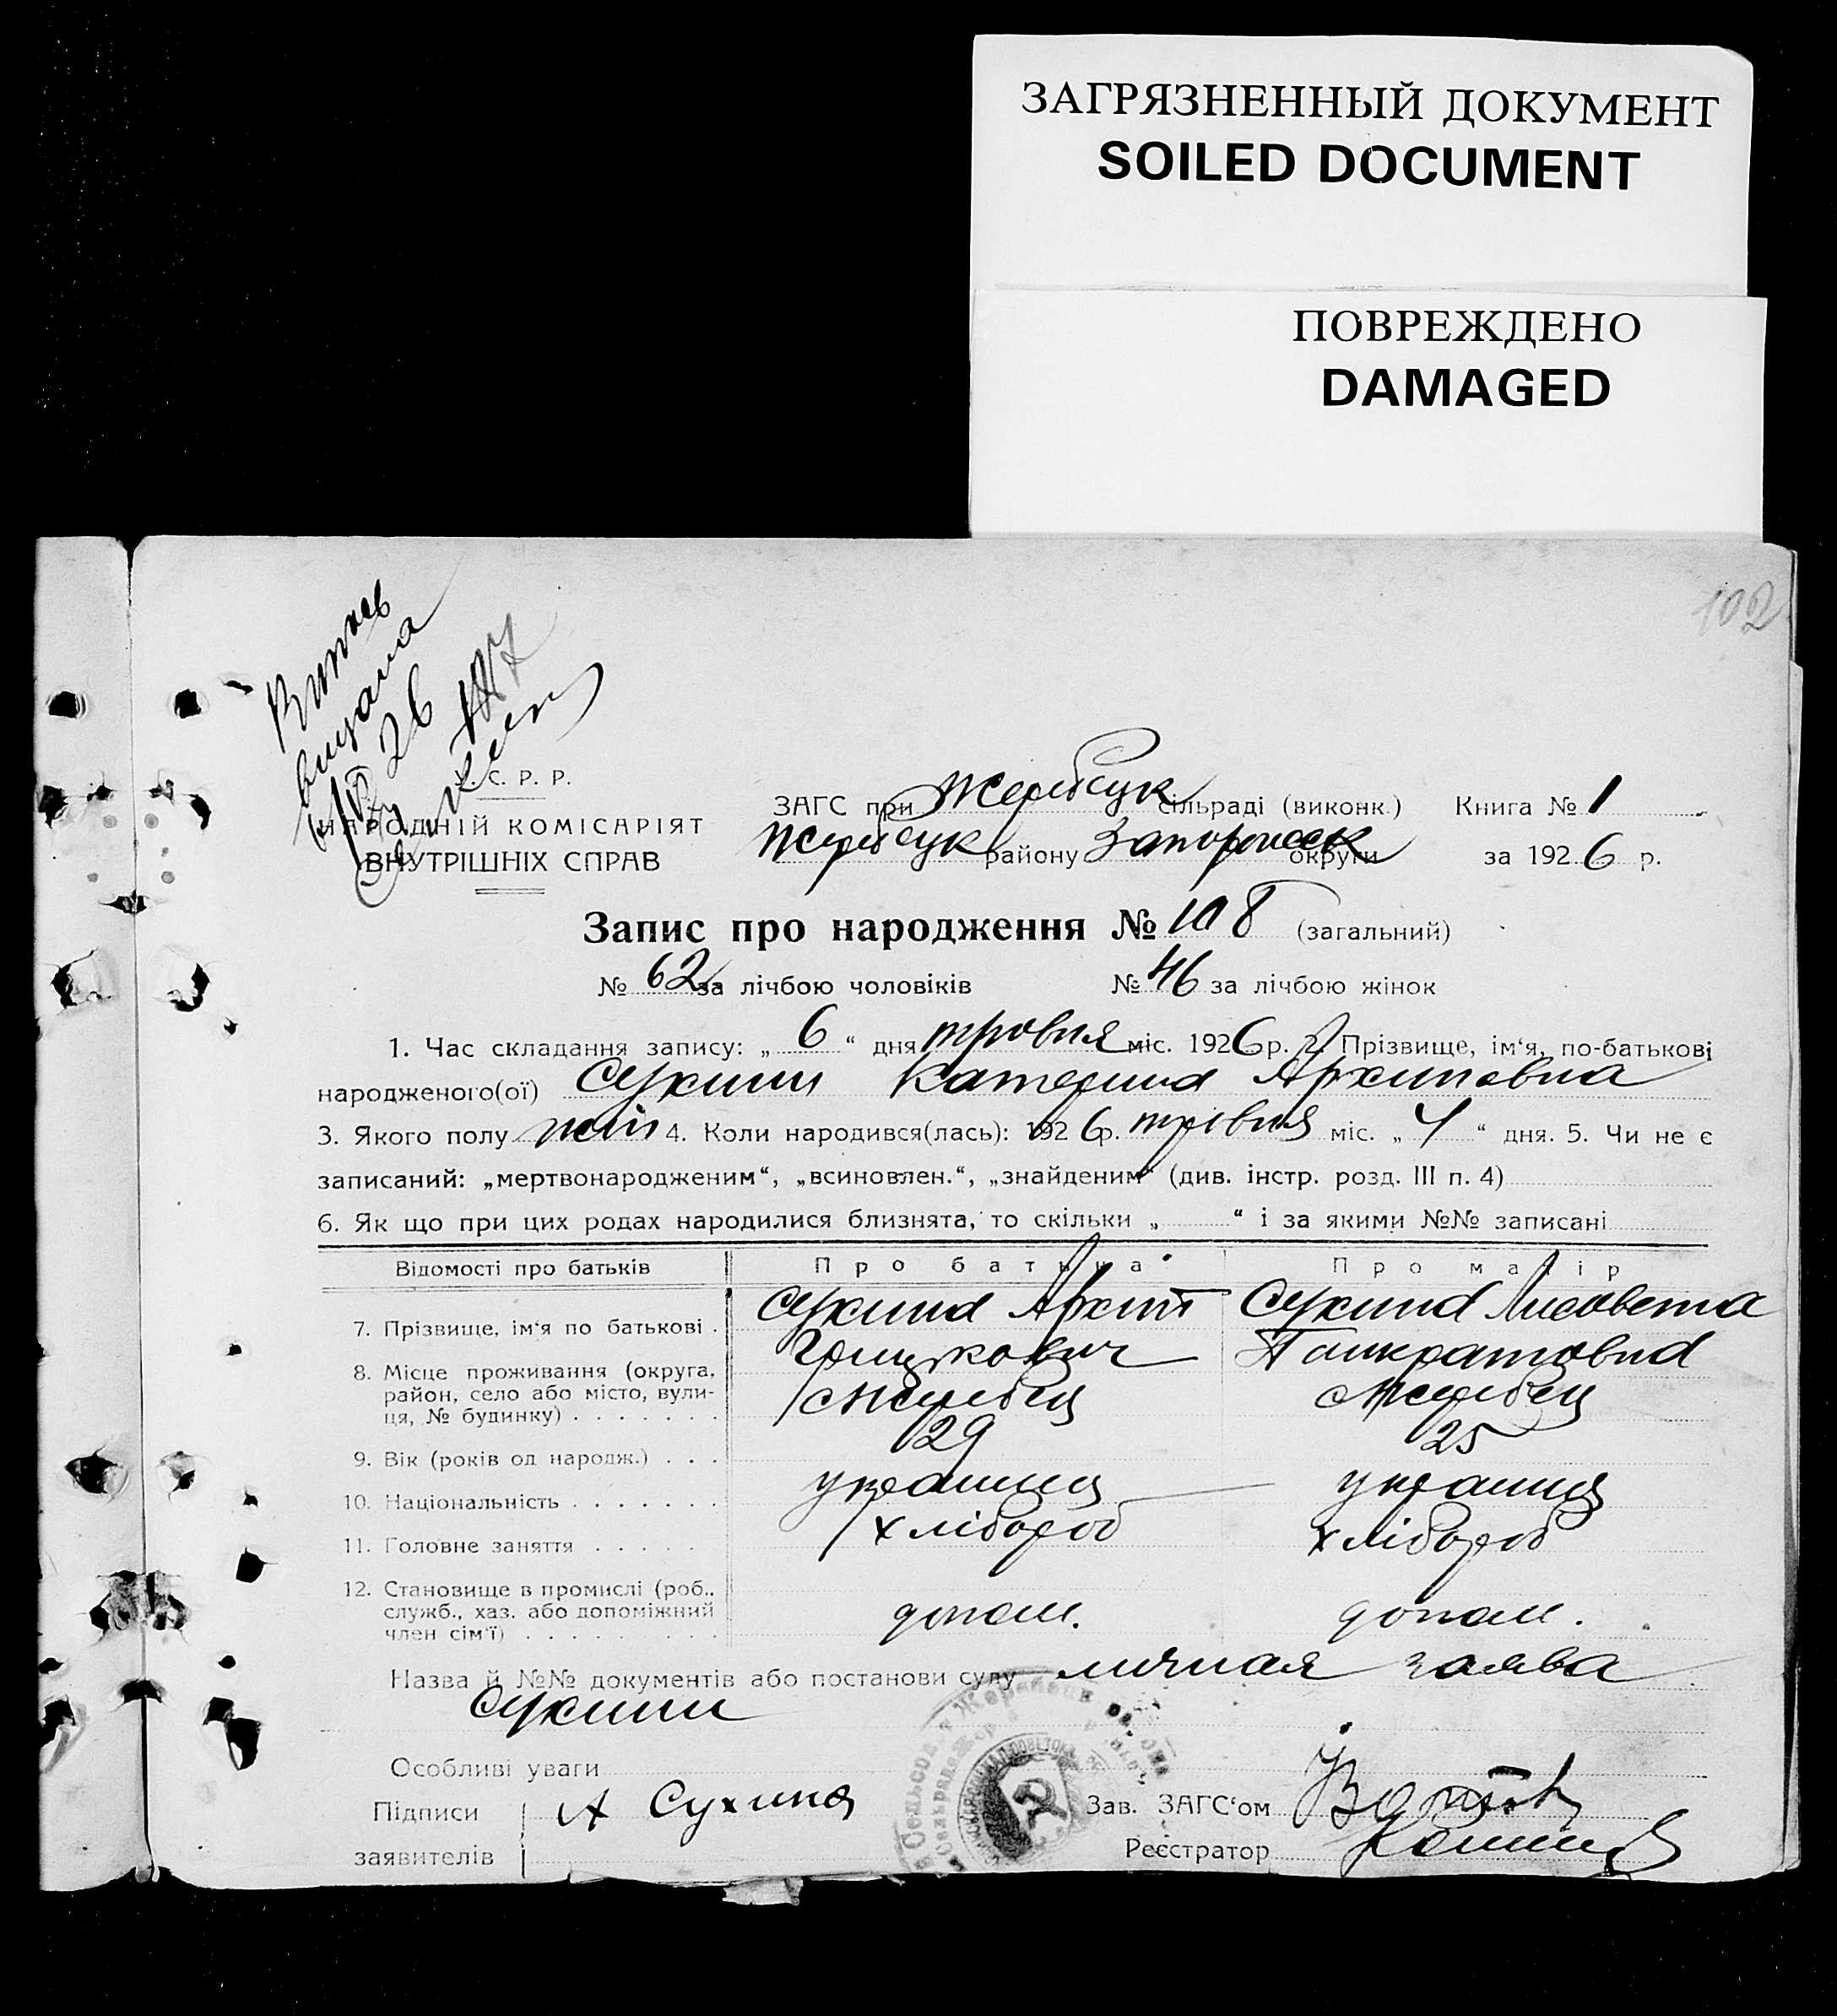 ЗАГРЯЗНЕННЫЙ ДОКУМЕНТ
SOILED DOCUMENT
ПОВРЕЖДЕНО
DAMAGED
102
видана
26
У. С. Р. Р.
НАРОДНІЙ КОМІСАРІЯТ
ВНУТРІШНІХ СПРАВ
ЗАГС при Жеребецк сільраді (виконк.) Книга № 1
Жеребецк району Запорожск округи за 1926 р.
Запис про народження № 108 (загальний)
№ 62 за лічбою чоловіків № 46 за лічбою жінок
1. Час складання запису: „ 6 “ дня травня міс. 1926 р. 2. Прізвище, ім‘я, по-батькові
народженого(ої) Сухини Катерина Архиповна
3. Якого полу жін 4. Коли народився(лась): 1926 р. травня міс. „ 4 “ дня. 5. Чи не є
записаний: „мертвонародженим“, „всиновлен.“, „знайденим“ (див. інстр. розд. III п. 4)
6. Як що при цих родах народилися близнята, то скільки „ “ і за якими №№ записані
Відомості про батьків Про батька Про матір
7. Прізвище, ім‘я по батькові . Сухина Архип Сухина Лисовета
Грицкович Панкратовна
8. Місце проживання (округа, район, село або місто, вулиця, № будинку) . . . . . . . с Жеребец с Жеребец
9. Вік (років од народж.) . . . 29 25
10. Національність . . . . . . . украинец украинец
11. Головне заняття . . . . . хлібороб хлібороб
12. Становище в промислі (роб., служб., хаз. або допоміжний член сім‘ї) . . . . . . . . допом. допом.
Назва й №№ документів або постанови суду личная заява
Сухини
Особливі уваги
Підписи А Сухина Зав. ЗАГС‘ом
заявителів Реєстратор